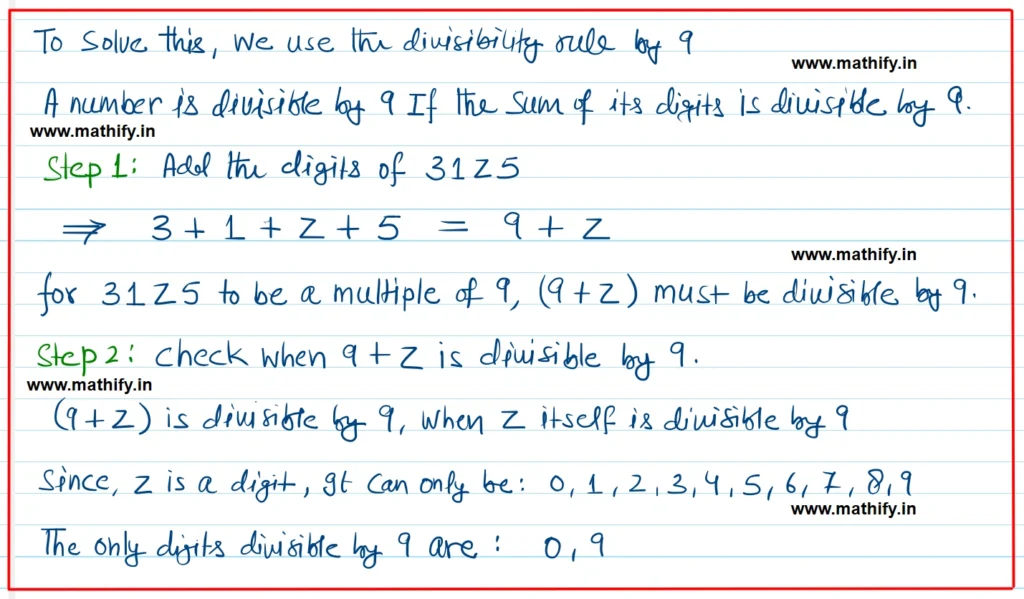 To solve this, we use the divisibility rule by 9
www.mathify.in
A number is divisible by 9 If the sum of its digits is divisible by 9.
www.mathify.in
Step 1: Add the digits of 31Z5
⇒ 3 + 1 + Z + 5 = 9 + Z
www.mathify.in
for 31Z5 to be a multiple of 9, (9+Z) must be divisible by 9.
Step 2: Check when 9 + Z is divisible by 9.
www.mathify.in
(9+Z) is divisible by 9, when Z itself is divisible by 9
Since, Z is a digit, It can only be: 0, 1, 2, 3, 4, 5, 6, 7, 8, 9
www.mathify.in
The only digits divisible by 9 are : 0, 9